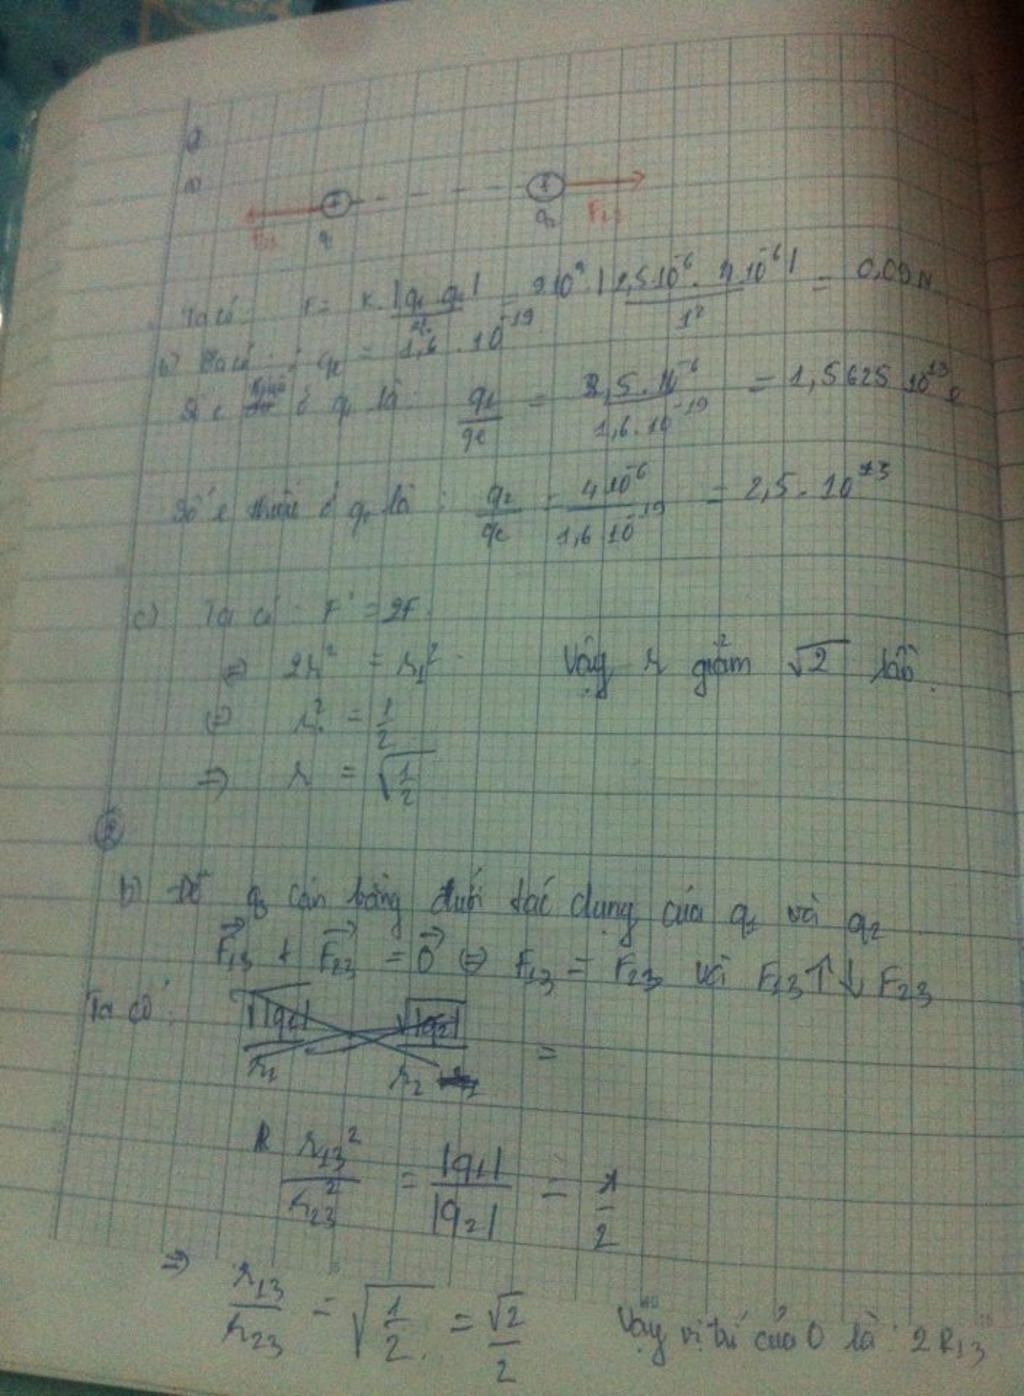 a)
F₂₁ q₁ q₂ F₁₂
Ta có F = k.|q₁.q₂| / r² = 9.10⁹.|2,5.10⁻⁶.4.10⁻⁶| / 1² = 0,09 N
b) Ta có : qe = 1,6.10⁻¹⁹
Số e thiếu ở q₁ là q₁/qe = 2,5.10⁻⁶ / 1,6.10⁻¹⁹ = 1,5625.10¹³ e
Số e thiếu ở q₂ là : q₂/qe = 4.10⁻⁶ / 1,6.10⁻¹⁹ = 2,5.10¹³
c) Ta có : F' = 2F.
⇒ 2r² = r₁² Vậy r giảm √2 lần.
⇒ r² = 1/2
⇒ r = √(1/2)
②
b) Để q₃ cân bằng dưới tác dụng của q₁ và q₂
F₁₃ + F₂₃ = 0 ⇔ F₁₃ = F₂₃ và F₁₃ ↑↓ F₂₃
Ta có : =
r₁₃² / r₂₃² = |q₁| / |q₂| = 1/2
⇒ r₁₃ / r₂₃ = √(1/2) = √2/2 Vậy vị trí của O là : 2R₁₃